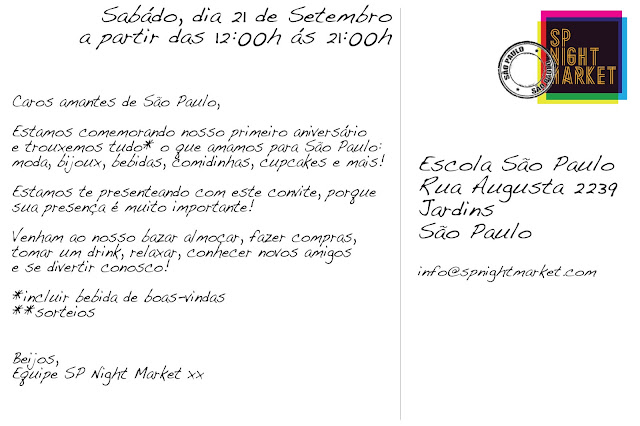 Sabádo, dia 21 de Setembro
a partir das 12:00h ás 21:00h
SP
NIGHT
MARKET
SÃO PAULO
Caros amantes de São Paulo,
Estamos comemorando nosso primeiro aniversário
e trouxemos tudo* o que amamos para São Paulo:
moda, bijoux, bebidas, comidinhas, cupcakes e mais!
Estamos te presenteando com este convite, porque
sua presença é muito importante!
Venham ao nosso bazar almoçar, fazer compras,
tomar um drink, relaxar, conhecer novos amigos
e se divertir conosco!
*incluir bebida de boas-vindas
**sorteios
Beijos,
Equipe SP Night Market xx
Escola São Paulo
Rua Augusta 2239
Jardins
São Paulo
info@spnightmarket.com